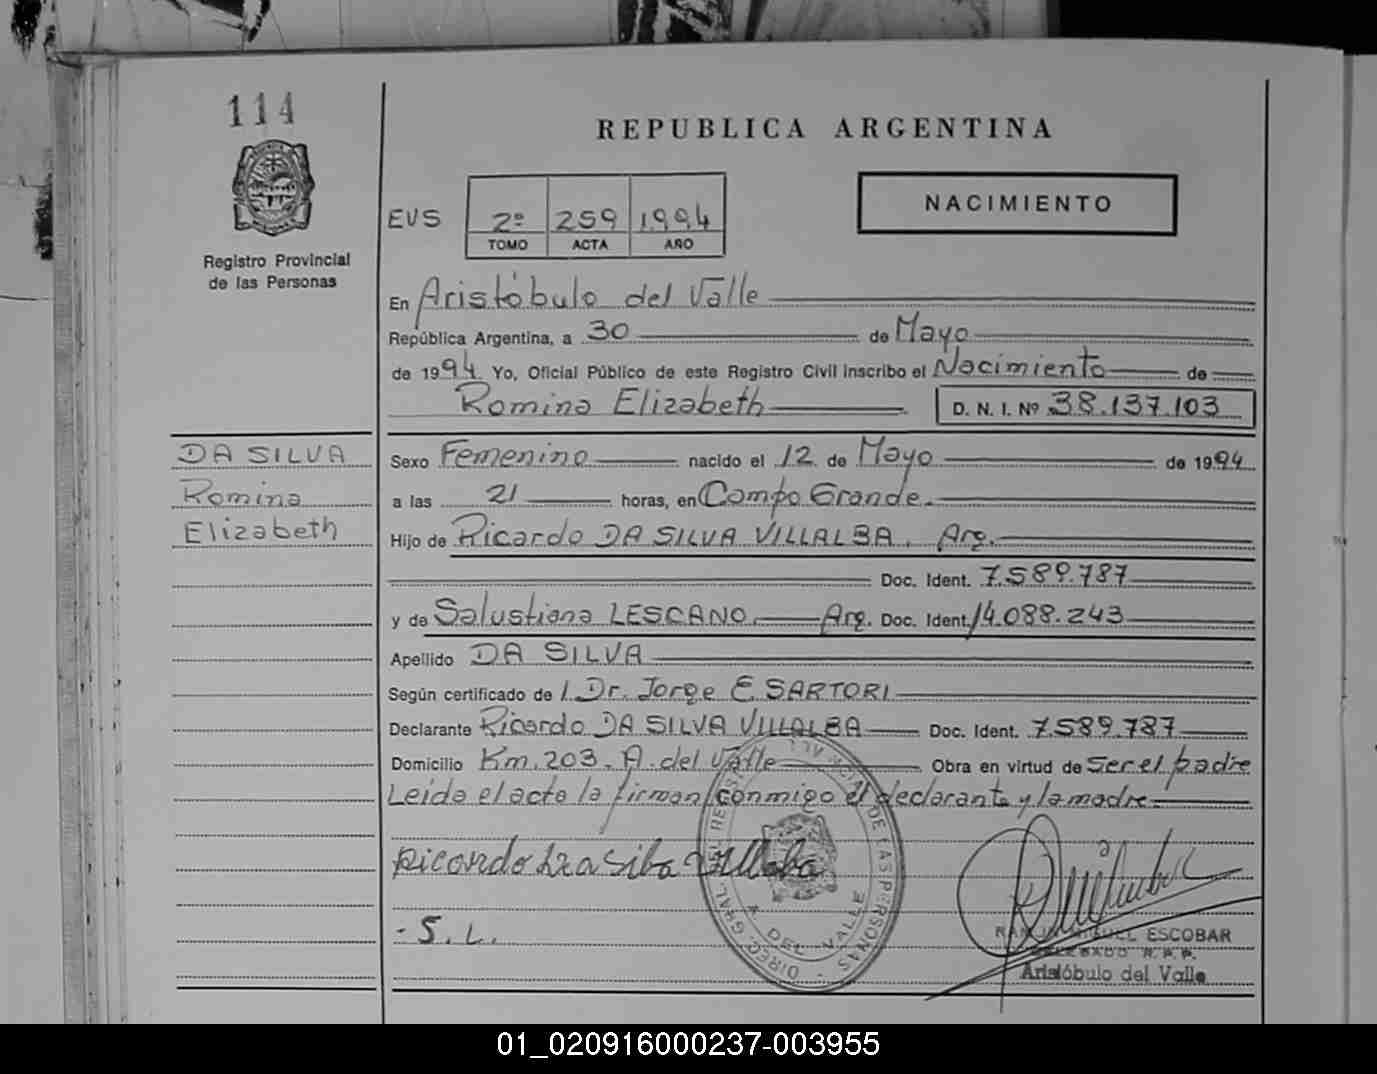 114
Registro Provincial
de las Personas
REPUBLICA ARGENTINA
NACIMIENTO
EVS 2º 259 1994
TOMO ACTA AÑO
En Aristóbulo del Valle
República Argentina, a 30 de Mayo
de 1994 Yo, Oficial Público de este Registro Civil inscribo el Nacimiento de
Romina Elizabeth D. N. I. Nº 38.137.103
DA SILVA
Romina
Elizabeth
Sexo Femenino nacido el 12 de Mayo de 1994
a las 21 horas, en Campo Grande.
Hijo de Ricardo DA SILVA VILLALBA. Arg.
Doc. Ident. 7.589.787
y de Salustiana LESCANO. Arg. Doc. Ident. 14.088.243
Apellido DA SILVA
Según certificado de l. Dr. Jorge E. SARTORI
Declarante Ricardo DA SILVA VILLALBA Doc. Ident. 7.589.787
Domicilio Km. 203. A. del Valle Obra en virtud de ser el padre
Leida el acta la firman conmigo el declarante y la madre.
Ricardo Da Silva Villalba
- S. L.
DIREC. GRAL. DE LAS PERSONAS
DEL VALLE
ESCOBAR
DELEGADO R.P.P.
Aristóbulo del Valle
01_020916000237-003955